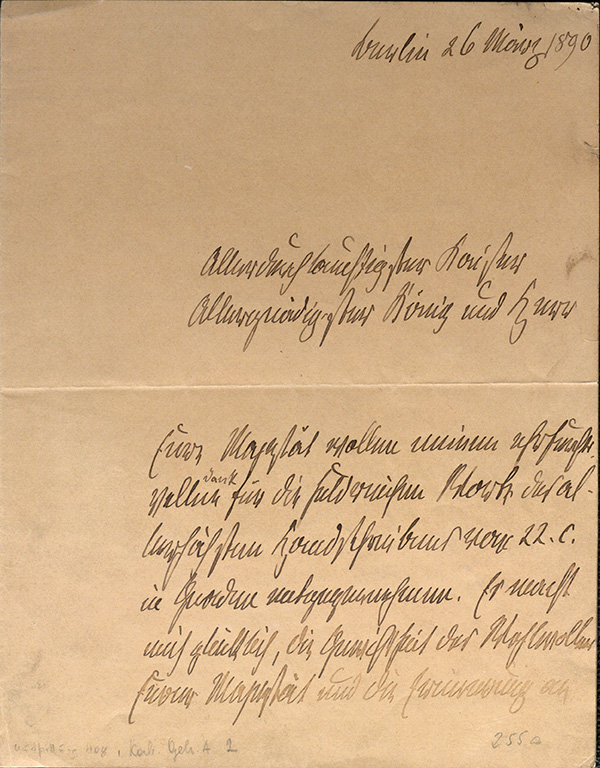 Berlin 26 März 1890
Allerdurchlauchtigster Kaiser
Allergnädigster König und Herr
Eure Majestät wollen meinen ehrfurchts-
vollen Dank für die huldreichen Worte des al-
lerhöchsten Handschreibens vom 22. c.
in Gnaden entgegennehmen. Es macht
mich glücklich, die Gewißheit des Wohlwollens
Eurer Majestät und die Erinnerung an
255a